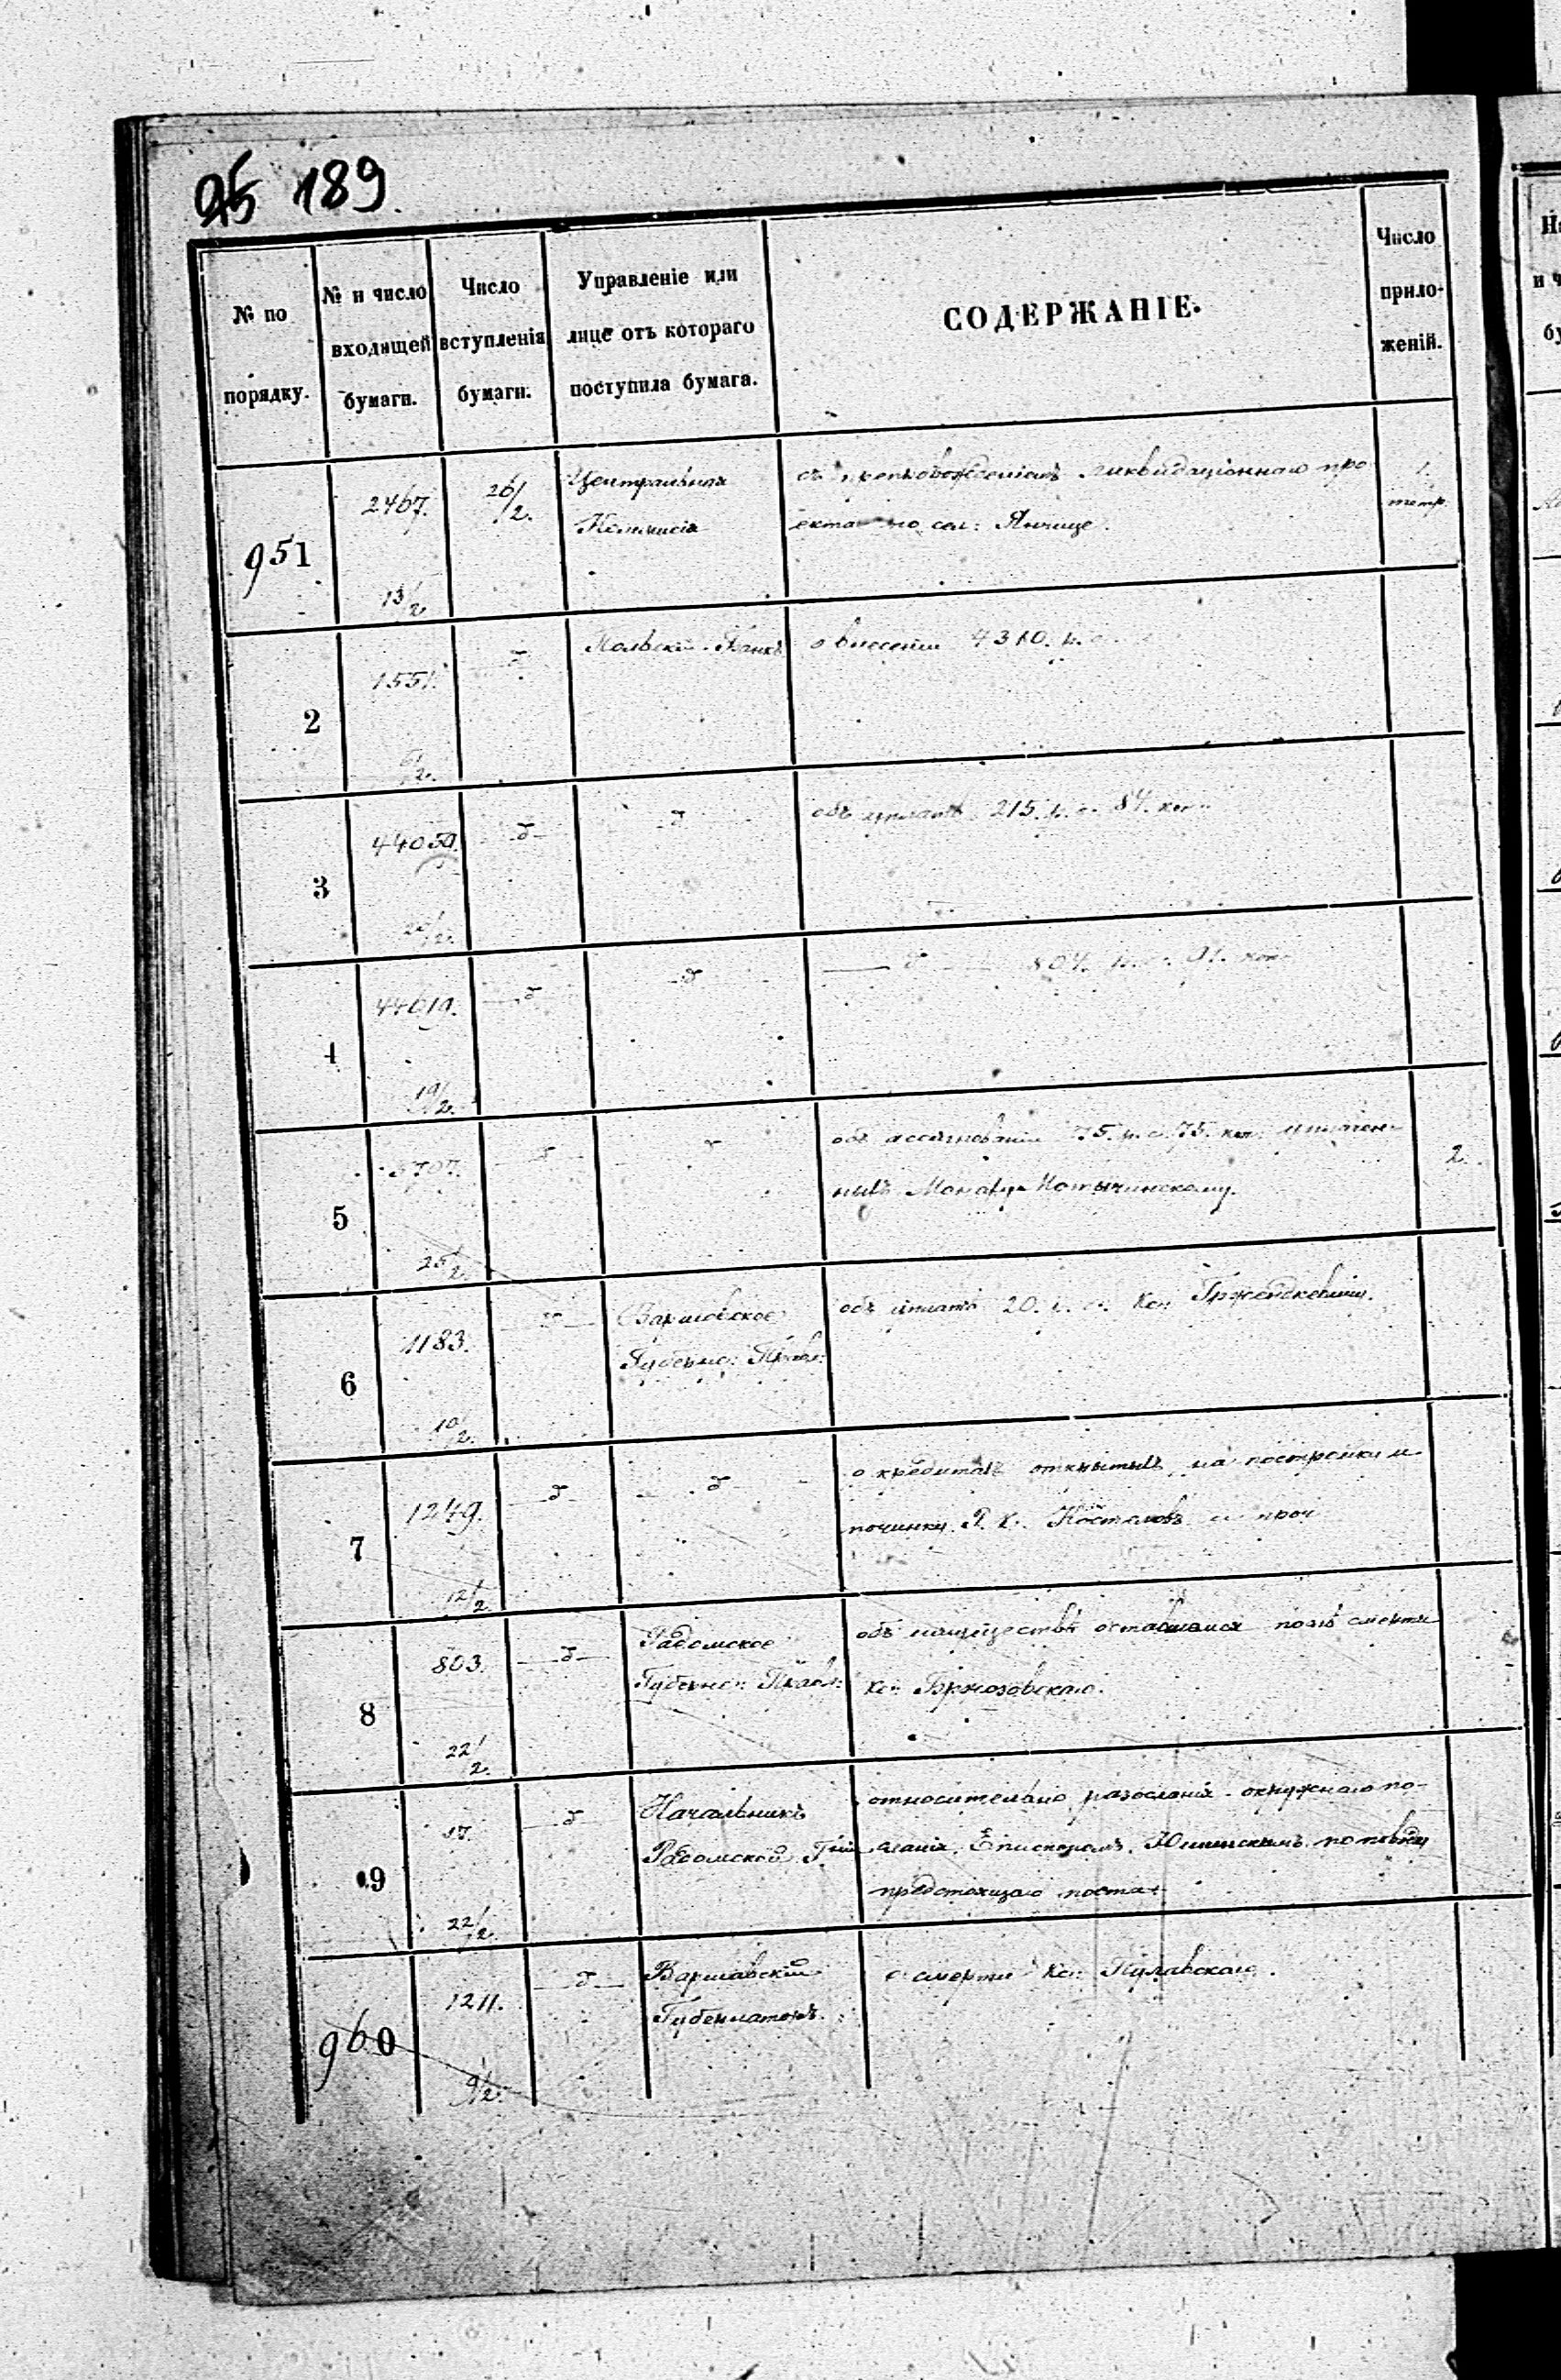 95 189.
№ по порядку.
№ и число входящей бумаги.
Число вступленія бумаги.
Управленіе или лице отъ котораго поступила бумага.
СОДЕРЖАНІЕ.
Число прило-женій.
951
2467.
13/2
26/2.
Центральная
Коммисія
съ препровожденіемъ ликвидаціоннаго про
екта по сел: Янчице.
1.
тетр.
2
1551.
д
Польскій Банкъ
о внесеніи 4310. р. с.
3
44050.
д
д
объ уплатѣ 215. р. с. 84. коп.
4
44019.
19/2.
д
д
д 804. р. с. 91. коп.
5
3707.
25/2.
д
д
объ ассигнованіи 75. р. с. 75. коп. уплачен-
ныхъ Монаху
2.
6
1183.
10/2.
д
Варшавское
Губернс: Правл:
объ уплатѣ 20. р. с. Кс:
7
1249.
12/2
д
д
о кредитахъ открытыхъ на постройки и
починки Р. К. Костеловъ и проч
8
803.
22/2.
д
Радомское
Губернс: Правл:
объ имуществѣ оставшемся послѣ смерти
Кс: Бржозовскаго.
9
17.
22/2.
д
Начальникъ
Радомской Г
относительно разосланія окружнаго по-
сланія Епископомъ Юшинскимъ по поводу
предстоящаго поста
960
1211.
9/2.
д
Варшавскій
Губернаторъ.
о смерти Кс: Пулавскаго.